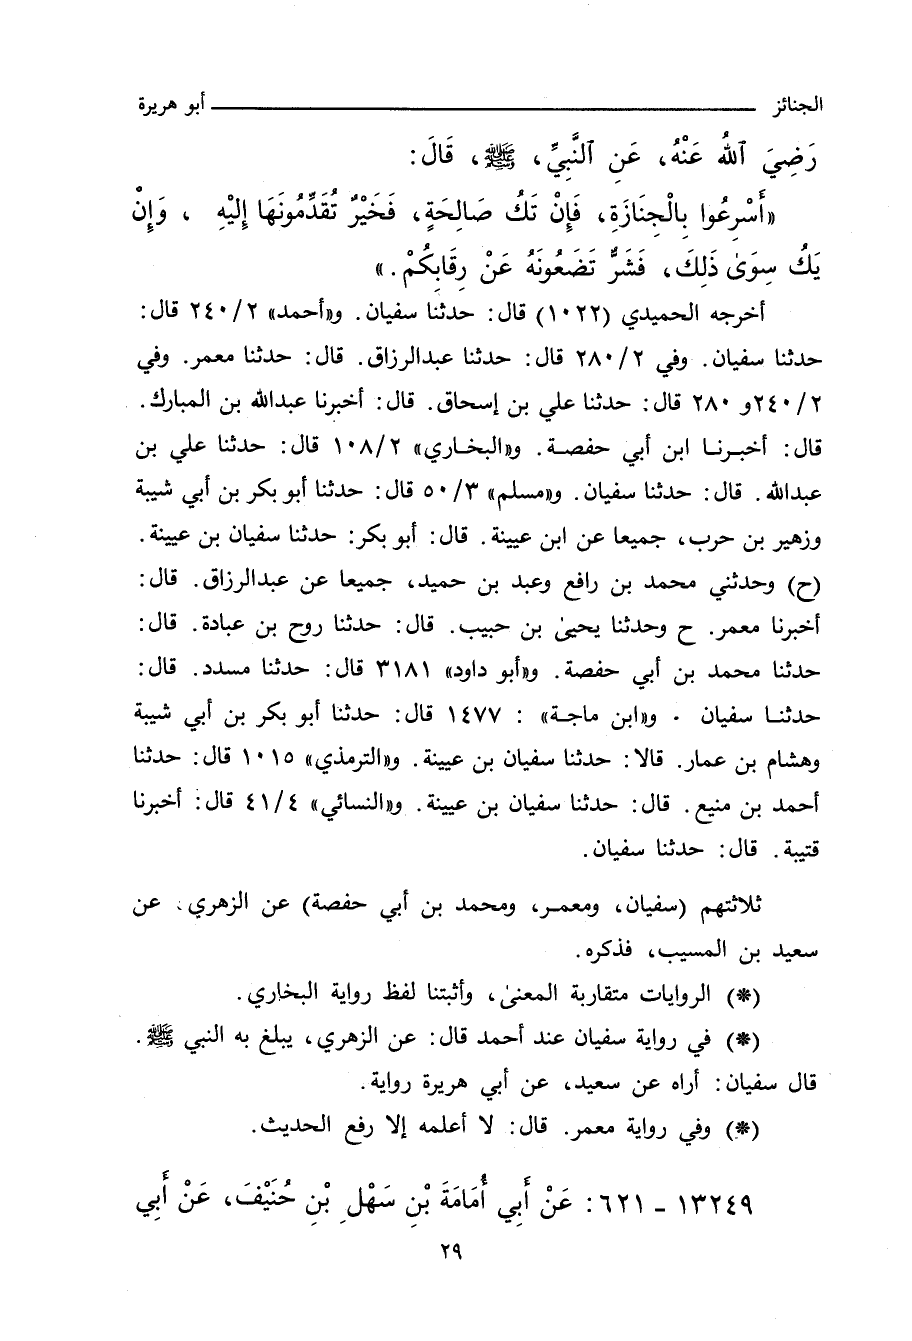 الجنائز ـــــــــــــــــــــ أبو هريرة
رَضِيَ ٱللهُ عَنْهُ، عَنِ ٱلنَّبِيِّ، ﷺ، قَالَ:
«أَسْرِعُوا بِالْجِنَازَةِ، فَإِنْ تَكُ صَالِحَةٍ، فَخَيْرٌ تُقَدِّمُونَهَا إِلَيْهِ ، وَإِنْ
يَكُ سِوَىٰ ذَلِكَ، فَشَرٌّ تَضَعُونَهُ عَنْ رِقَابِكُمْ.»
أخرجه الحميدي (١٠٢٢) قال: حدثنا سفيان. و«أحمد» ٢/ ٢٤٠ قال:
حدثنا سفيان. وفي ٢/ ٢٨٠ قال: حدثنا عبدالرزاق. قال: حدثنا معمر. وفي
٢/ ٢٤٠و ٢٨٠ قال: حدثنا علي بن إسحاق. قال: أخبرنا عبدالله بن المبارك.
قال: أخبرنا ابن أبي حفصة. و«البخاري» ٢/ ١٠٨ قال: حدثنا علي بن
عبدالله. قال: حدثنا سفيان. و«مسلم» ٣/ ٥٠ قال: حدثنا أبو بكر بن أبي شيبة
وزهير بن حرب، جميعا عن ابن عيينة. قال: أبو بكر: حدثنا سفيان بن عيينة.
(ح) وحدثني محمد بن رافع وعبد بن حميد، جميعا عن عبدالرزاق. قال:
أخبرنا معمر. ح وحدثنا يحيىٰ بن حبيب. قال: حدثنا روح بن عبادة. قال:
حدثنا محمد بن أبي حفصة. و«أبو داود» ٣١٨١ قال: حدثنا مسدد. قال:
حدثنا سفيان . و«ابن ماجة» : ١٤٧٧ قال: حدثنا أبو بكر بن أبي شيبة
وهشام بن عمار. قالا: حدثنا سفيان بن عيينة. و«الترمذي» ١٠١٥ قال: حدثنا
أحمد بن منيع. قال: حدثنا سفيان بن عيينة. و«النسائي» ٤/ ٤١ قال: أخبرنا
قتيبة. قال: حدثنا سفيان.
ثلاثتهم (سفيان، ومعمر، ومحمد بن أبي حفصة) عن الزهري، عن
سعيد بن المسيب، فذكره.
(*) الروايات متقاربة المعنىٰ، وأثبتنا لفظ رواية البخاري.
(*) في رواية سفيان عند أحمد قال: عن الزهري، يبلغ به النبي ﷺ.
قال سفيان: أراه عن سعيد، عن أبي هريرة رواية.
(*) وفي رواية معمر. قال: لا أعلمه إلا رفع الحديث.
١٣٢٤٩ - ٦٢١: عَنْ أَبِي أُمَامَةَ بْنِ سَهْلِ بْنِ حُنَيْفَ، عَنْ أَبِي
٢٩